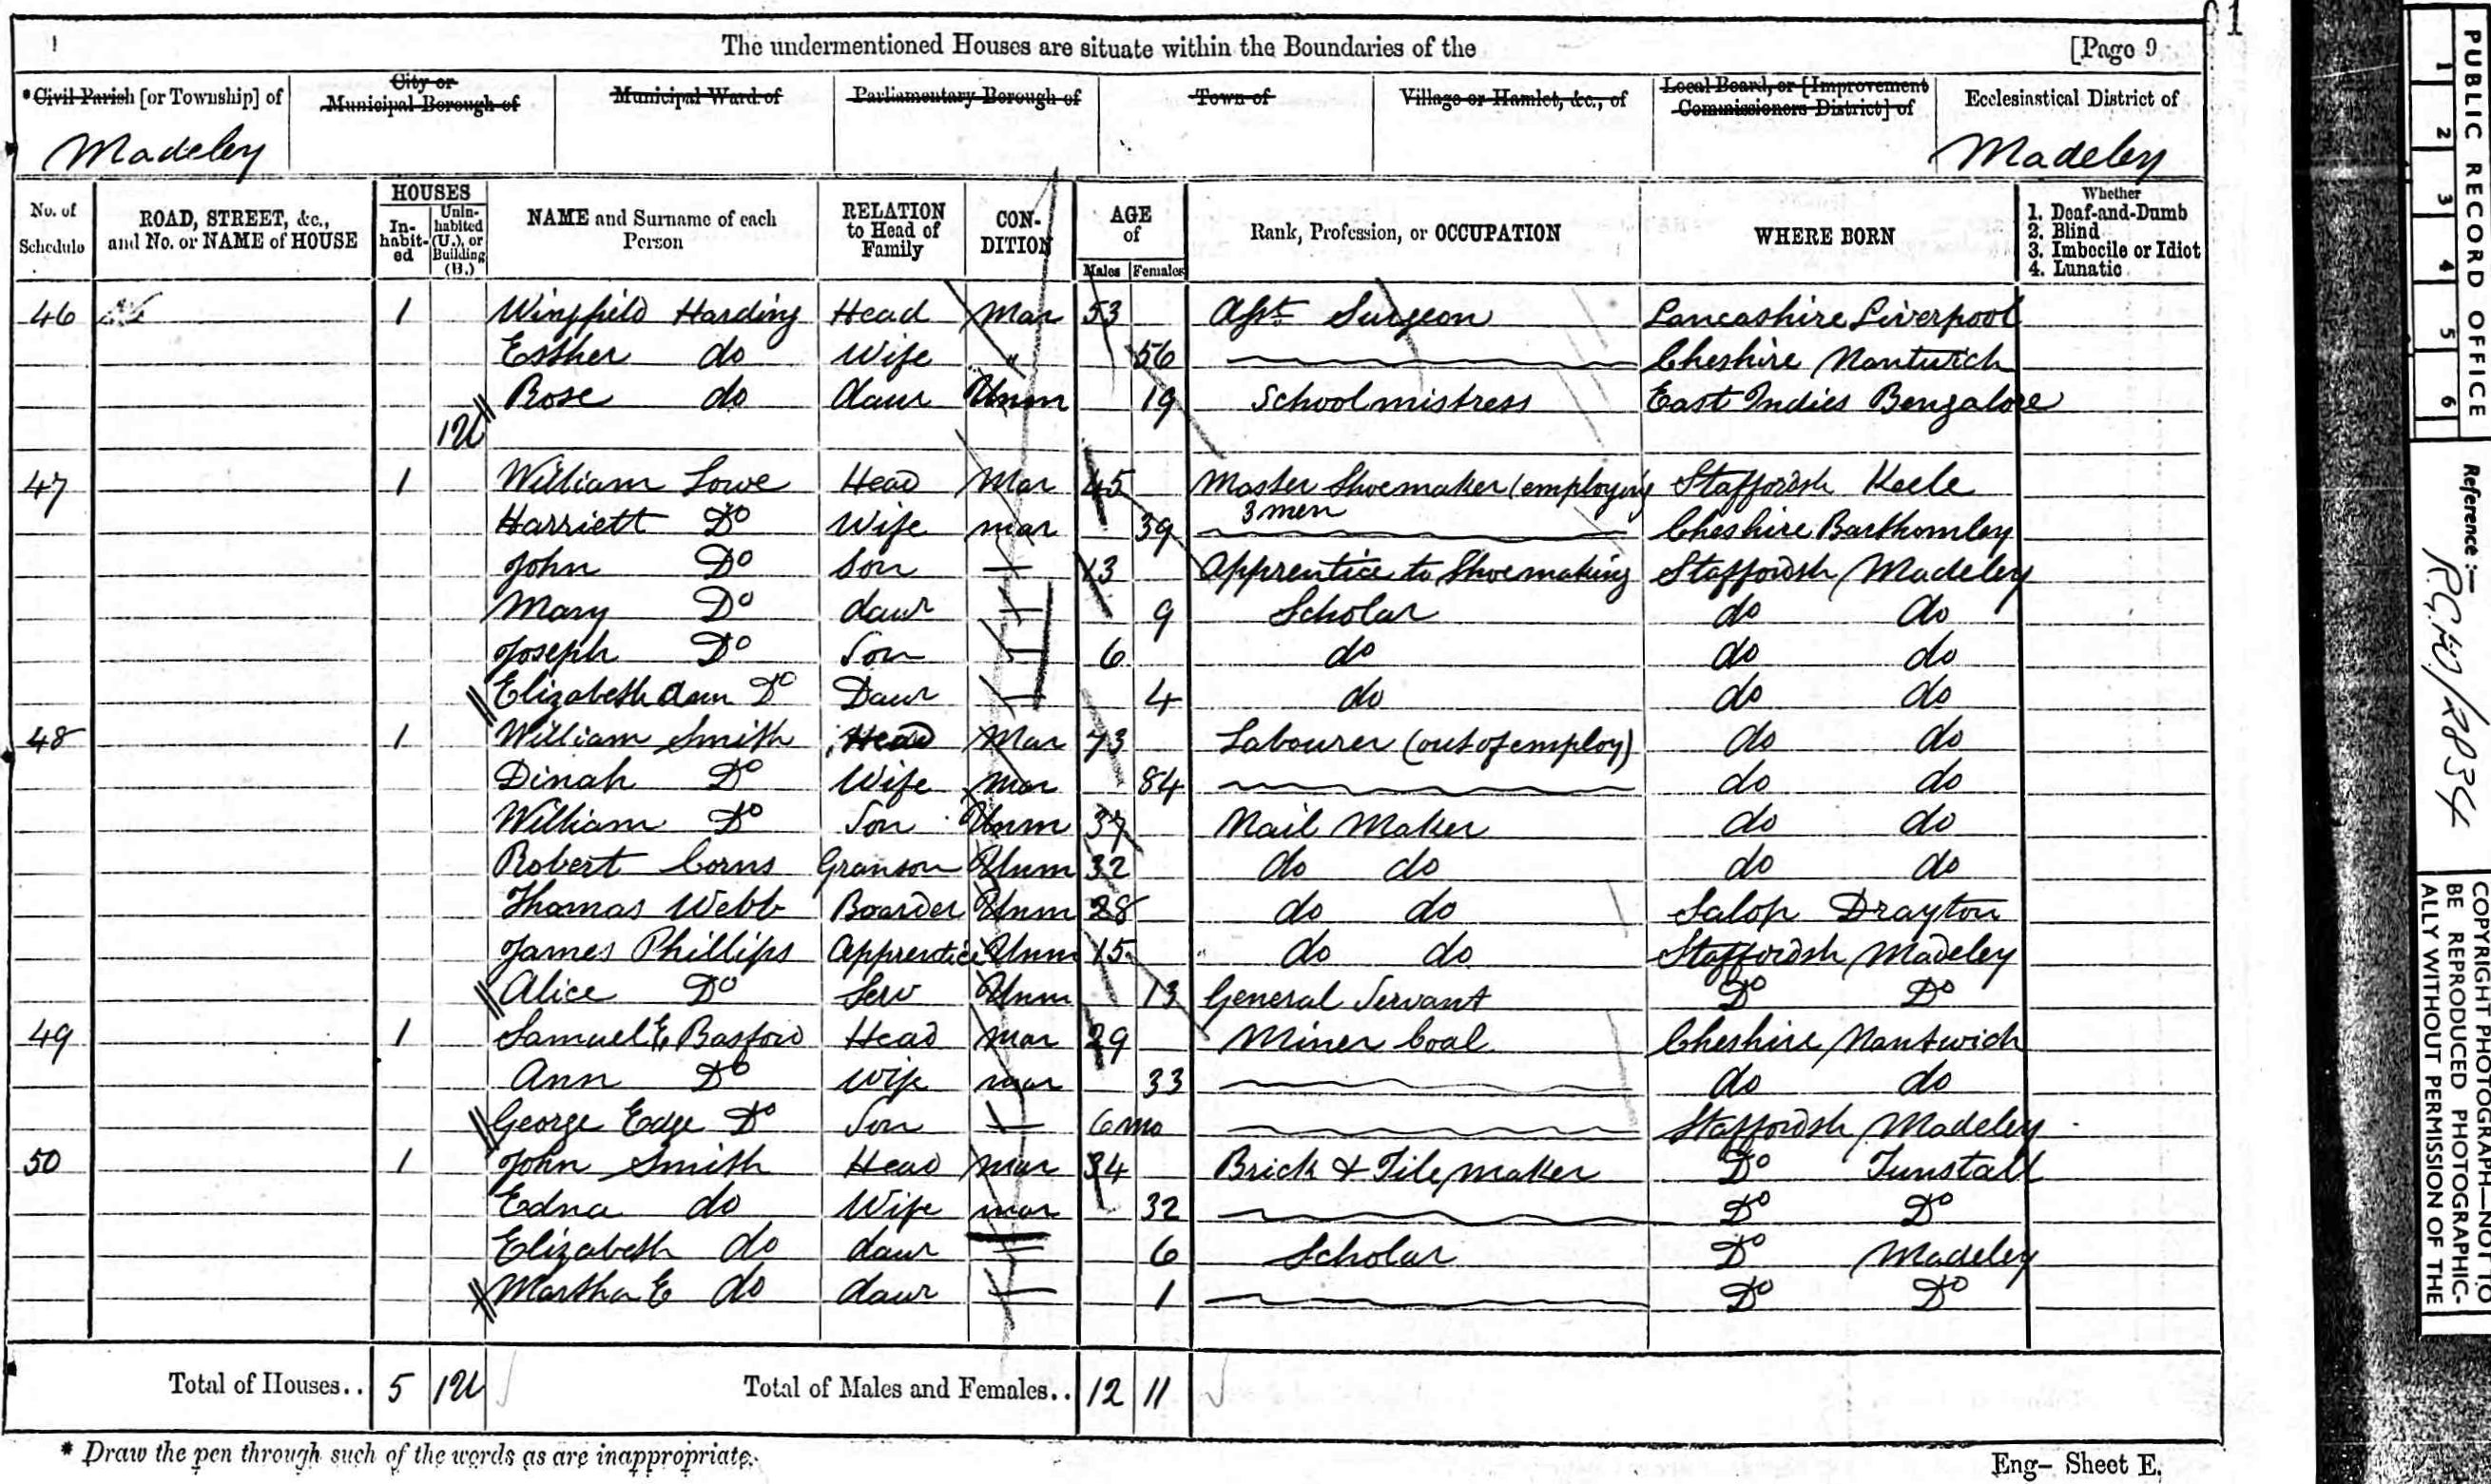 The undermentioned Houses are situate within the Boundaries of the [Page 9
*Civil Parish [or Township] of City or Municipal Borough of Municipal Ward of Parliamentary Borough of Town of Village or Hamlet, &c., of Local Board, or [Improvement Commissioners District] of Ecclesiastical District of
Madeley Madeley
No. of Schedule ROAD, STREET, &c., and No. or NAME of HOUSE HOUSES In-habit-ed Unin-habited (U.), or Building (B.) NAME and Surname of each Person RELATION to Head of Family CON-DITION AGE of Males Females Rank, Profession, or OCCUPATION WHERE BORN Whether 1. Deaf-and-Dumb 2. Blind 3. Imbecile or Idiot 4. Lunatic
46 1 Wingfield Harding Head Mar 53 Asst Surgeon Lancashire Liverpool
Esther do Wife " 56 Cheshire Nantwich
Rose do daur Unm 19 Schoolmistress East Indies Bengalore
1U
47 1 William Lowe Head Mar 45 Master Shoemaker (employing 3 men Staffordsh Keele
Harriett Do Wife mar 39 Cheshire Barthomley
John Do Son 13 Apprentice to Shoemaking Staffordsh Madeley
Mary Do daur 9 Scholar do do
Joseph Do Son 6 do do do
Elizabeth ann Do Daur 4 do do do
48 1 William Smith Head Mar 73 Labourer (out of employ) do do
Dinah Do Wife mar 84 do do
William Do Son Unm 37 Nail Maker do do
Robert Corns Granson Unm 32 do do do do
Thomas Webb Boarder Unm 28 do do Salop Drayton
James Phillips apprentice Unm 15 do do Staffordsh Madeley
Alice Do Serv Unm 13 General Servant Do Do
49 1 Samuel E Basford Head mar 29 Miner Coal Cheshire Nantwich
Ann Do Wife mar 33 do do
George Edge Do Son 6 mo Staffordsh Madeley
50 1 John Smith Head mar 34 Brick & Tile maker Do Tunstall
Edna do Wife mar 32 Do Do
Elizabeth do daur 6 Scholar Do Madeley
Martha E do daur 1 Do Do
Total of Houses.. 5 1U Total of Males and Females.. 12 11
* Draw the pen through such of the words as are inappropriate.
Eng- Sheet E.
PUBLIC RECORD OFFICE
1 2 3 4 5 6
Reference:-
R.G.10/2834
COPYRIGHT PHOTOGRAPH-NOT TO
BE REPRODUCED PHOTOGRAPHIC-
ALLY WITHOUT PERMISSION OF THE